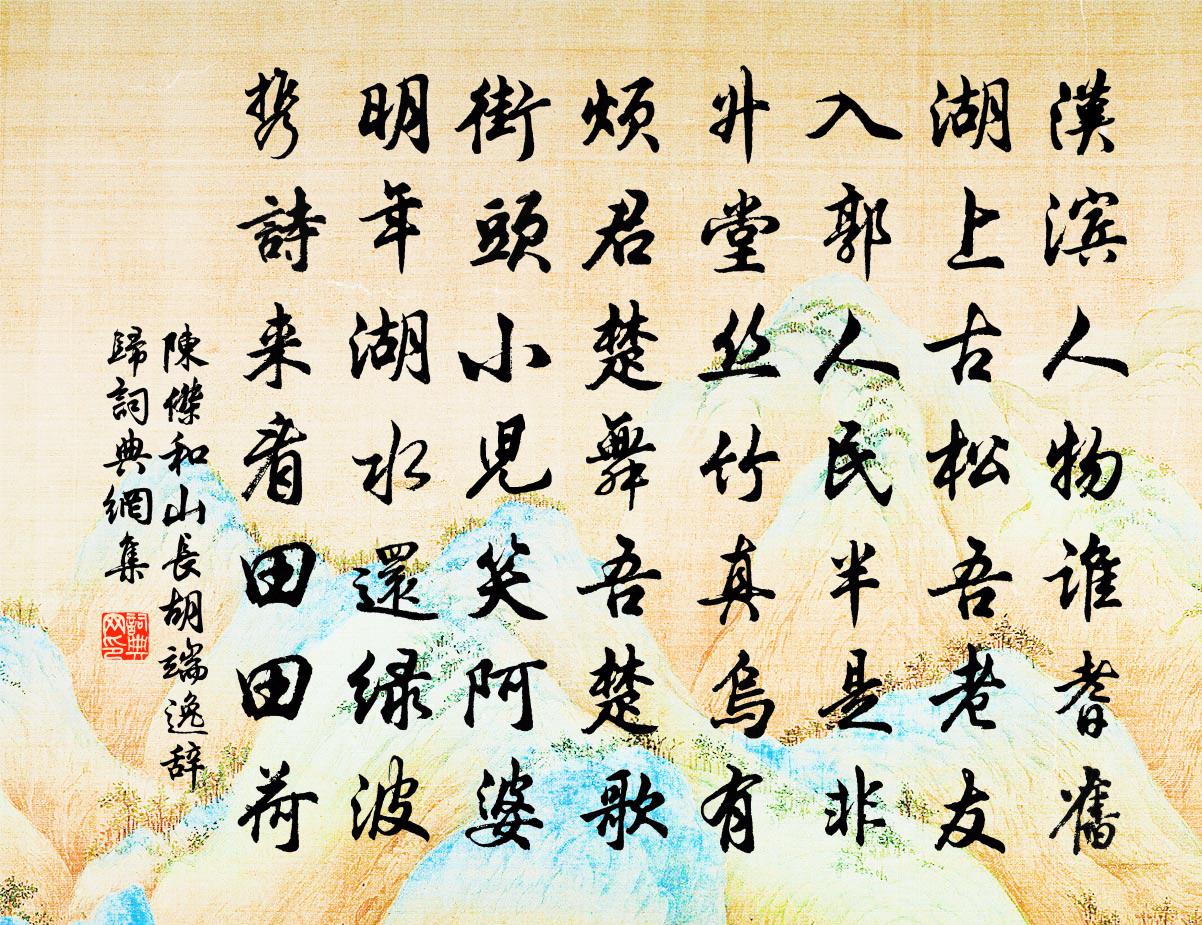 漢滨人物谁耆舊
湖上古松吾老友
入郭人民半是非
升堂丝竹真烏有
煩君楚舞吾楚歌
街頭小児笑阿婆
明年湖水還緑波
携詩来看田田荷
陳傑和山長胡端逸辞
歸詞典網集
詞典网印